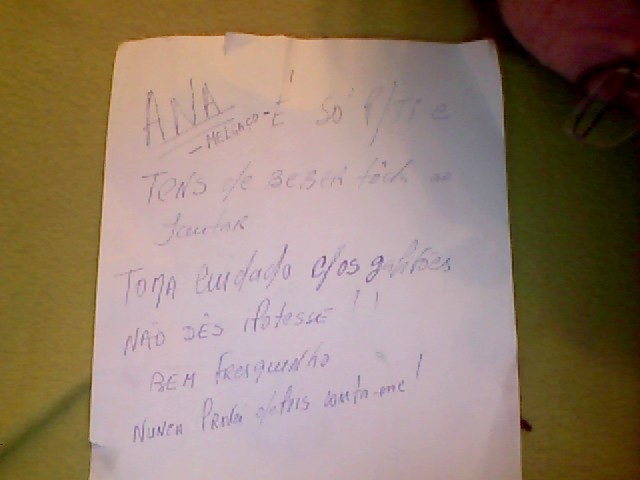 ANA
- MELGAÇO - É SÓ P/TI e
TENS de BEBER tôda ao
Jantar
TOMA Cuidado c/os gulitões
NÃO DÊS ipotesse!!
BEM FRESQUINHO
NUNCA PROVEI depois conta-me!